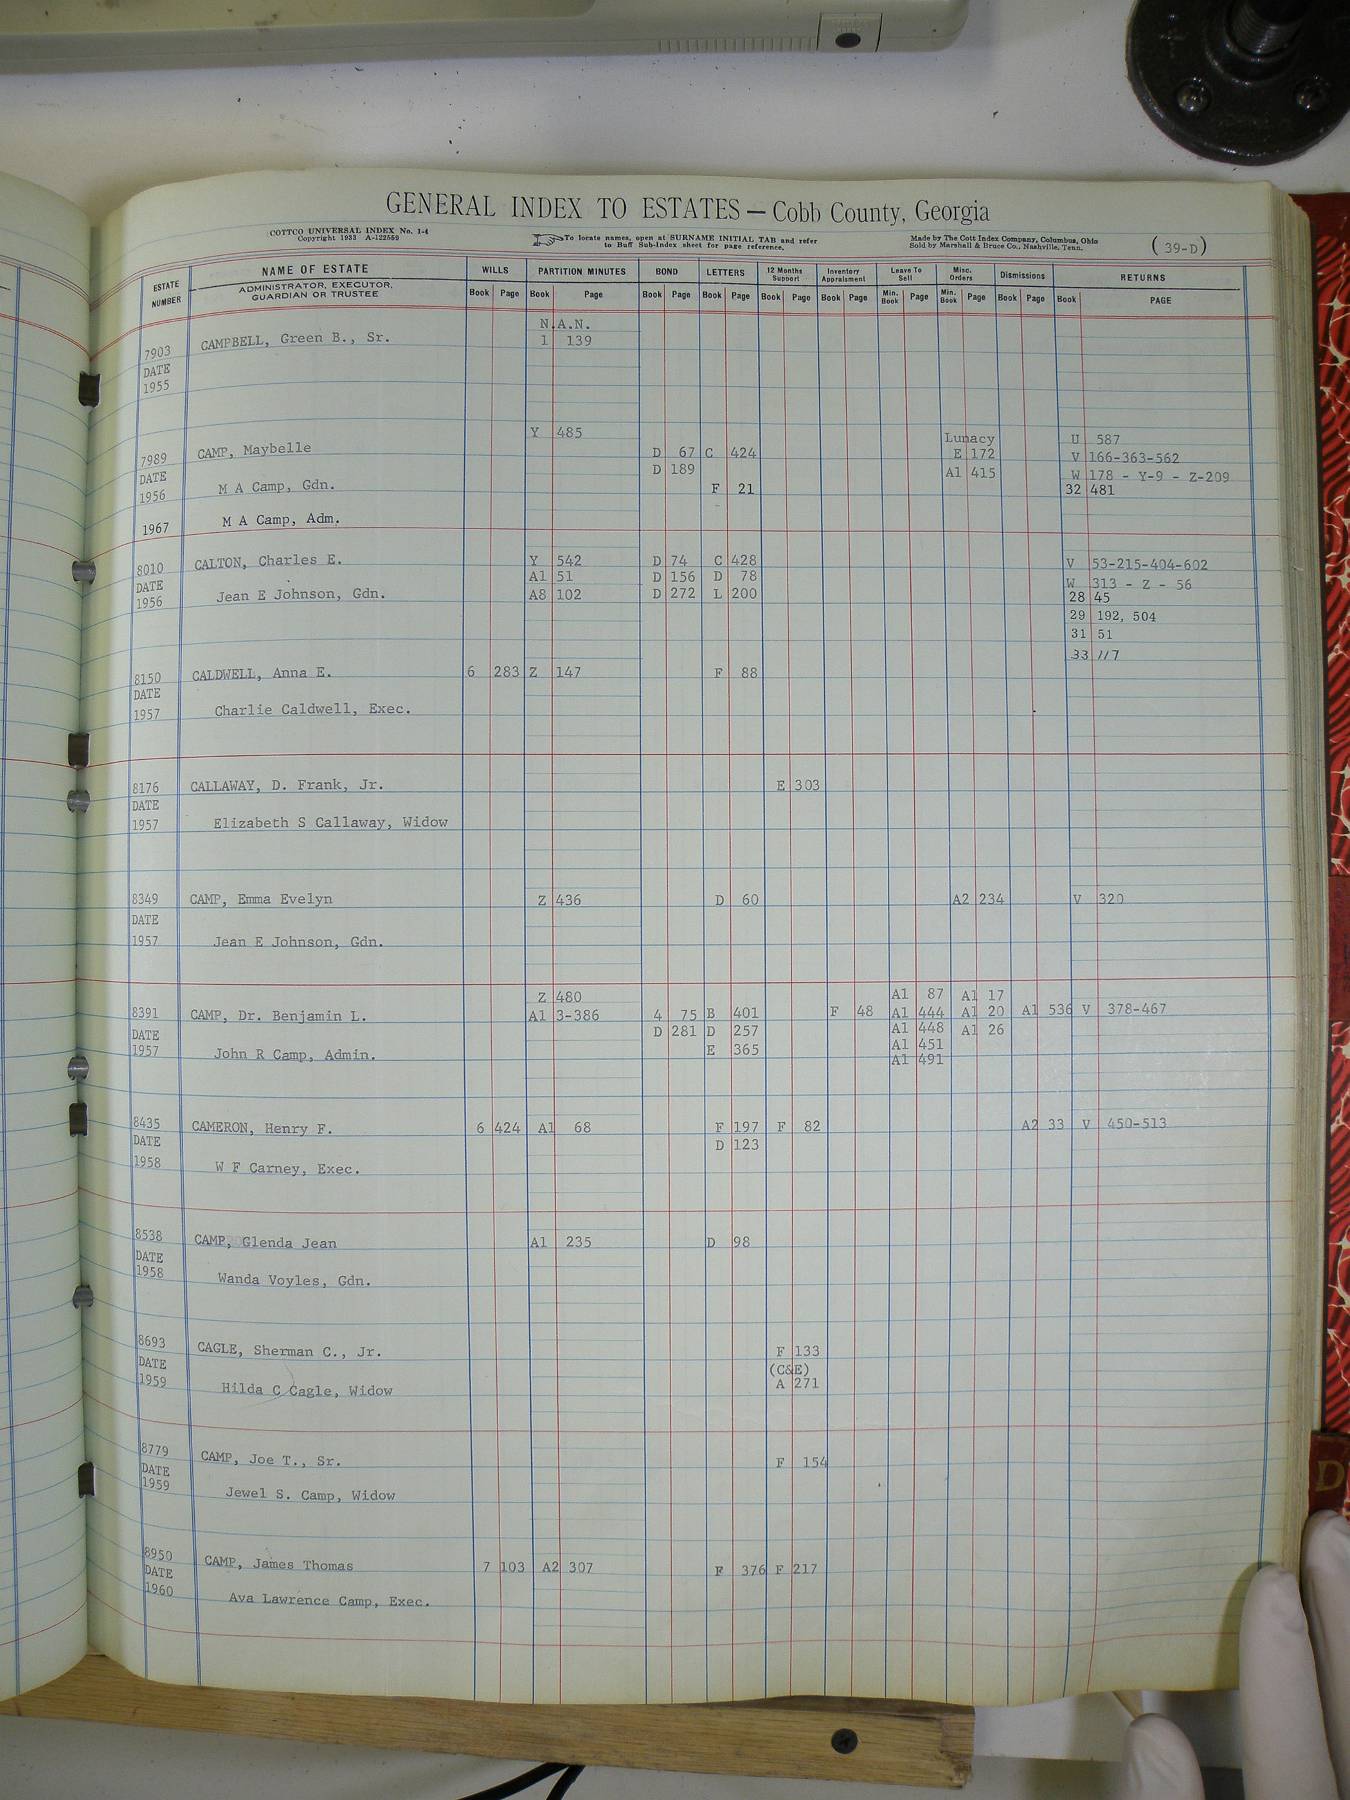 GENERAL INDEX TO ESTATES — Cobb County, Georgia
COTTCO UNIVERSAL INDEX No. 1-4
Copyright 1933 A-122559
To locate names, open at SURNAME INITIAL TAB and refer
to Buff Sub-Index sheet for page reference.
Made by The Cott Index Company, Columbus, Ohio
Sold by Marshall & Bruce Co., Nashville, Tenn.
(39-D)
ESTATE NUMBER
NAME OF ESTATE
ADMINISTRATOR, EXECUTOR,
GUARDIAN OR TRUSTEE
WILLS PARTITION MINUTES BOND LETTERS 12 Months Support Inventory Appraisment Leave To Sell Misc. Orders Dismissions RETURNS
Book Page Book Page Book Page Book Page Book Page Book Page Min. Book Page Min. Book Page Book Page Book PAGE
N.A.N.
7903 CAMPBELL, Green B., Sr. 1 139
DATE
1955
Y 485 Lunacy U 587
7989 CAMP, Maybelle D 67 C 424 E 172 V 166-363-562
DATE D 189 A1 415 W 178 - Y-9 - Z-209
1956 M A Camp, Gdn. F 21 32 481
1967 M A Camp, Adm.
8010 CALTON, Charles E. Y 542 D 74 C 428 V 53-215-404-602
DATE A1 51 D 156 D 78 W 313 - Z - 56
1956 Jean E Johnson, Gdn. A8 102 D 272 L 200 28 45
29 192, 504
31 51
33 117
8150 CALDWELL, Anna E. 6 283 Z 147 F 88
DATE
1957 Charlie Caldwell, Exec.
8176 CALLAWAY, D. Frank, Jr. E 303
DATE
1957 Elizabeth S Callaway, Widow
8349 CAMP, Emma Evelyn Z 436 D 60 A2 234 V 320
DATE
1957 Jean E Johnson, Gdn.
Z 480 A1 87 A1 17
8391 CAMP, Dr. Benjamin L. A1 3-386 4 75 B 401 F 48 A1 444 A1 20 A1 536 V 378-467
DATE D 281 D 257 A1 448 A1 26
1957 John R Camp, Admin. E 365 A1 451
A1 491
8435 CAMERON, Henry F. 6 424 A1 68 F 197 F 82 A2 33 V 450-513
DATE D 123
1958 W F Carney, Exec.
8538 CAMP, Glenda Jean A1 235 D 98
DATE
1958 Wanda Voyles, Gdn.
8693 CAGLE, Sherman C., Jr. F 133
DATE (C&E)
1959 Hilda C Cagle, Widow A 271
8779 CAMP, Joe T., Sr. F 154
DATE
1959 Jewel S. Camp, Widow
8950 CAMP, James Thomas 7 103 A2 307 F 376 F 217
DATE
1960 Ava Lawrence Camp, Exec.
D